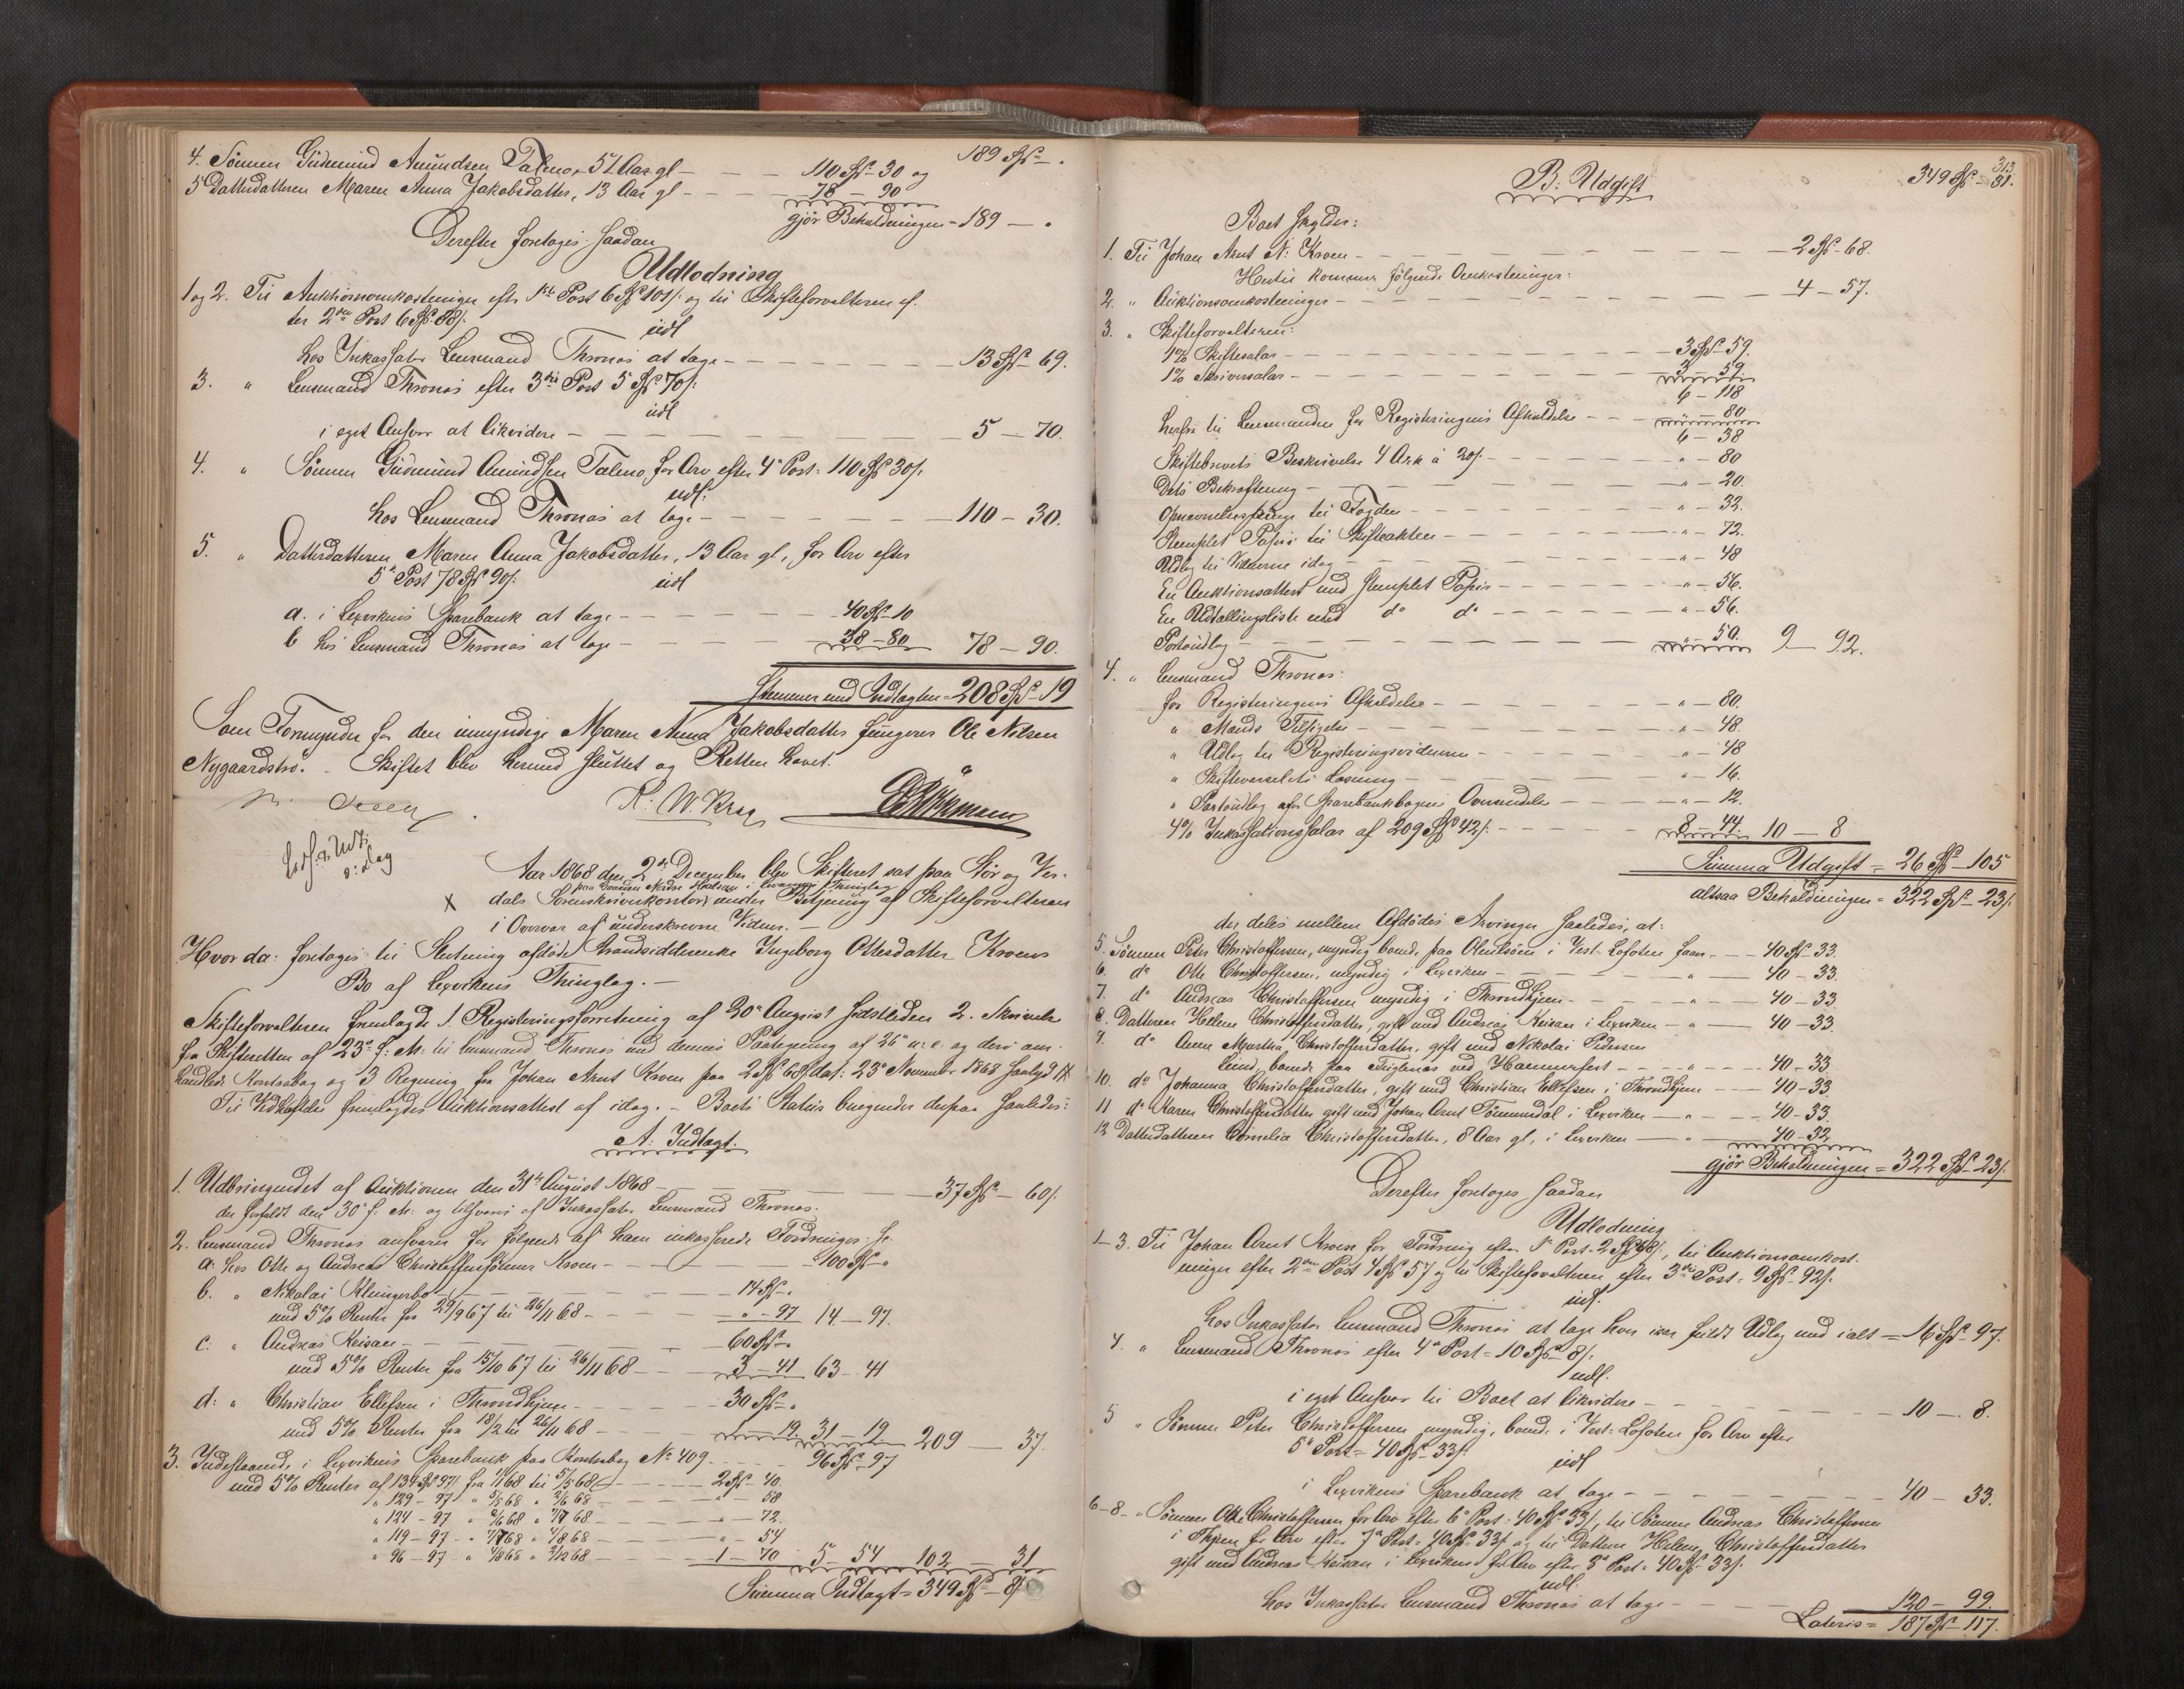 189 Spd -  .
4. Sønnen Gudmund Amundsen Talmo, 51 Aar gl - - - 110 Spd - 30 og
5 Datterdatteren Maren Anna Jakobsdatter, 13 Aar gl - - - 78 - 90
gjør Beholdningen = 189 - .
Derefter foretoges saadan
Udlodning
1 og 2. Til Auktionsomkostninger efter 1ste Post 6 Spd 101 s. og til Skifteforvalteren ef-
ter 2den Post 6 Spd 88 s.
udl
hos Inkassator Lensmand Thronæs at tage - - - 13 Spd - 69.
3. " Lensmand Thronæs efter 3die Post 5 Spd 70 s.
udl
i eget Ansvar at likvidere - - - 5 - 70.
4. " Sønnen Gudmund Amundsen Talmo, for Arv efter 4de Post = 110 Spd 30 s.
udl.
hos Lensmand Thronæs at tage - - - 110 - 30.
5. " Datterdatteren Maren Anna Jakobsdatter, 13 Aar gl, for Arv efter
5te Post 78 Spd 90 s.
udl
a. i Lexvikens Sparebank at tage - - - 40 Spd - 10
b hos Lensmand Thronæs at tage - - - 38 - 80 78 - 90.
Stemmer med Indtægten = 208 Spd - 19
Som Formynder for den umyndige Maren Anna Jakobsdatter fungerer Ole Nilsen
Nygaardstrø. - Skiftet blev hermed sluttet og Retten hævet.
R. W. Krag
Aar 1868 den 2den December blev Skifteret sat paa Stør og Ver-
paa Gaarden Nordre i Thinglag
x dals Sorenskriverkontor under Betjening af Skifteforvalteren
i Overvær af underskrevne Vidner. -
Hvor da: foretoges til Slutning afdøde Strandsidderenke Ingeborg Ottesdatter Kroens
Bo af Lexvikens Thinglag. -
Skifteforvalteren fremlagde 1. Registreringsforretning af 30te August sidstleden 2. Skrivelse
fra Skifteretten af 23de f. M. til Lensmand Thronæs med dennes Paategning af 26de s. M. og deri om-
handlede Kontrabog og 3 Regning fra Johan Arnt Kroen paa 2 Spd 68 s dat: 23de November 1868 saalyd
Til Vedhæftelse fremlagdes Auktionsattest af idag. - Boets Status beregnedes derpaa saaledes:
A: Indtægt.
1. Udbringendet af Auktionen den 31te August 1868 - - - 37 Spd - 60 s.
der forfaldt den 30te f. M. og tilsvares af Inkassator Lensmand Thronæs.
2. Lensmand Thronæs ansvarer for følgende af ham inkasserede Fordringer:
a: hos Otte og Andreas Christoffersønner Kroen - - - 100 Spd - "
b. " Nikolai Klingerbo - - - 14 Spd - .
med 5% Renter fra 29/9 67 til 26/11 68 - - - " - 97 14 - 97.
c: " Andreas Keisan - - - 60 Spd - "
med 5% Renter fra 15/10 67 til 26/11 68 - - - 3 - 41 63 - 41
d: " Christian Ellefsen i Throndhjem - - - 30 Spd - "
med 5% Renter fra 18/2 til 26/11 68 - - - 1 - 19 31 - 19 209 - 37.
3. Indestaaende i Lexvikens Sparebank paa Kontrabog No 409 - - - 96 Spd - 97
med 5% Renter af 134 Spd 97 s. fra 1/1 68 til 5/5 68 - - - 2 Spd - 40.
" 129 - 97 " 5/5 68 " 2/6 68 - - - " - 58
" 124 - 97 " 2/6 68 " 7/7 68 - - - " - 72.
" 119 - 97 - " 7/7 68 " 4/8 68 - - - " - 54
" 96 - 97 - " 4/8 68 " 2/12 68 - - - 1 - 70 5 - 54 102 - 31
Summa Indtægt = 349 Spd - 8 s.
313
B: Udgift
349 Spd - 31.
Boet skylder:
1. Til Johan Arnt N: Kroen - - - 2 Spd - 68.
Hertil kommer følgende Omkostninger:
2. " Auktionsomkostninger - - - 4 - 57.
3. " Skifteforvalteren:
1% Skiftesalær - - - 3 Spd - 59.
1% Skriversalær - - - 3 - 59.
6 - 118
herfra til Lensmanden for Registreringens Afholdelse - - " - 80
6 - 38
Skiftebrevets Beskrivelse 4 Ark à 20 s. - - - " - 80
Dets Bekræftning - - - " - 20.
Opnævnelses til Fogden - - - " - 32.
Stemplet Papir til Skifteakten - - - " - 72.
Udlæg til Vidnerne idag - - - " - 48
En Auktionsattest med stemplet Papir - - - " - 56.
En Udtællingsliste med do do - - - " - 56.
Portoudlæg - - - " - 50. 9 - 92.
4. " Lensmand Thronæs:
for Registreringens Afholdelse - - - " - 80.
" Mænds Tilsigelse - - - " - 48.
" Udlæg til Registreringsvidnerne - - - " - 48
" Skiftevarselets Læsning - - - " - 16.
" Portoudlæg Sparebankbogens Oversendelse - - - " - 12.
4% Inkassationssalær af 209 Spd 42 s. - - - 8 - 44. 10 - 8
Summa Udgift = 26 Spd - 105
altsaa Beholdningen = 322 Spd - 23 s.
der deles mellem Afdødes Arvinger saaledes, at:
5. Sønnen Peter Christoffersen, myndig boende paa i Vest Lofoten faar - - 40 Spd - 33.
6. do Otte Christoffersen, myndig i Lexviken - - - " - 40 - 33.
7. do Andreas Christoffersen myndig i Throndhjem - - - " - 40 - 33
8. Datteren Helene Christoffersdatter, gift med Andreas Keisan i Lexviken - " - 40 - 33.
9. do Anne Martha Christoffersdatter, gift med Nikolai Pedersen
Lund, boende paa Fuglenæs ved Hammerfest - - - " - 40 - 33.
10. do Johanna Christoffersdatter, gift med Christian Ellefsen i Throndhjem - - - 40 - 33.
11 do Karen Christoffersdatter gift med Johan Arnt Tømmerdal i Lexviken - " - - 40 - 33.
12 Datterdatteren Cornelia Christoffersdatter, 8 Aar gl, i Lexviken - " - 40 - 32
gjør Beholdningen = 322 Spd - 23 s.
Derefter foretoges saadan
Udlodning
1-3. Til Johan Arnt Kroen for Fordring efter 1ste Post = 2 Spd 68 s., til Auktionsomkost-
ninger efter 2den Post 4 Spd 57 og til Skifteforvalteren efter 3die Post = 9 Spd - 92 s.
udl.
hos Inkassator Lensmand Thronæs at tage fuldt Udlæg med ialt = 16 Spd - 97.
4. " Lensmand Thronæs efter 4de Post = 10 Spd - 8 s.
udl.
i eget Ansvar til Boet at likvidere - - - 10 - 8.
5 " Sønnen Peter Christoffersen myndig, boende i Vest-Lofoten for Arv efter
5te Post = 40 Spd - 33 s.
udl
i Lexvikens Sparebank at tage - - - 40 - 33.
6-8 - " Sønnen Otte Christoffersen for Arv efter 6te Post = 40 Spd - 33 s, til Sønnen Andreas Christoffersen
i Thjem for Arv efter 7de Post = 40 Spd - 33 s og til Datteren Helene Christoffersdatter
gift med Andreas Keisan i Lexviken for Arv efter 8de Post = 40 Spd - 33 s.
udl.
hos Inkassator Lensmand Thronæs at tage - - - 120 - 99.
Lateris = 187 Spd - 117.